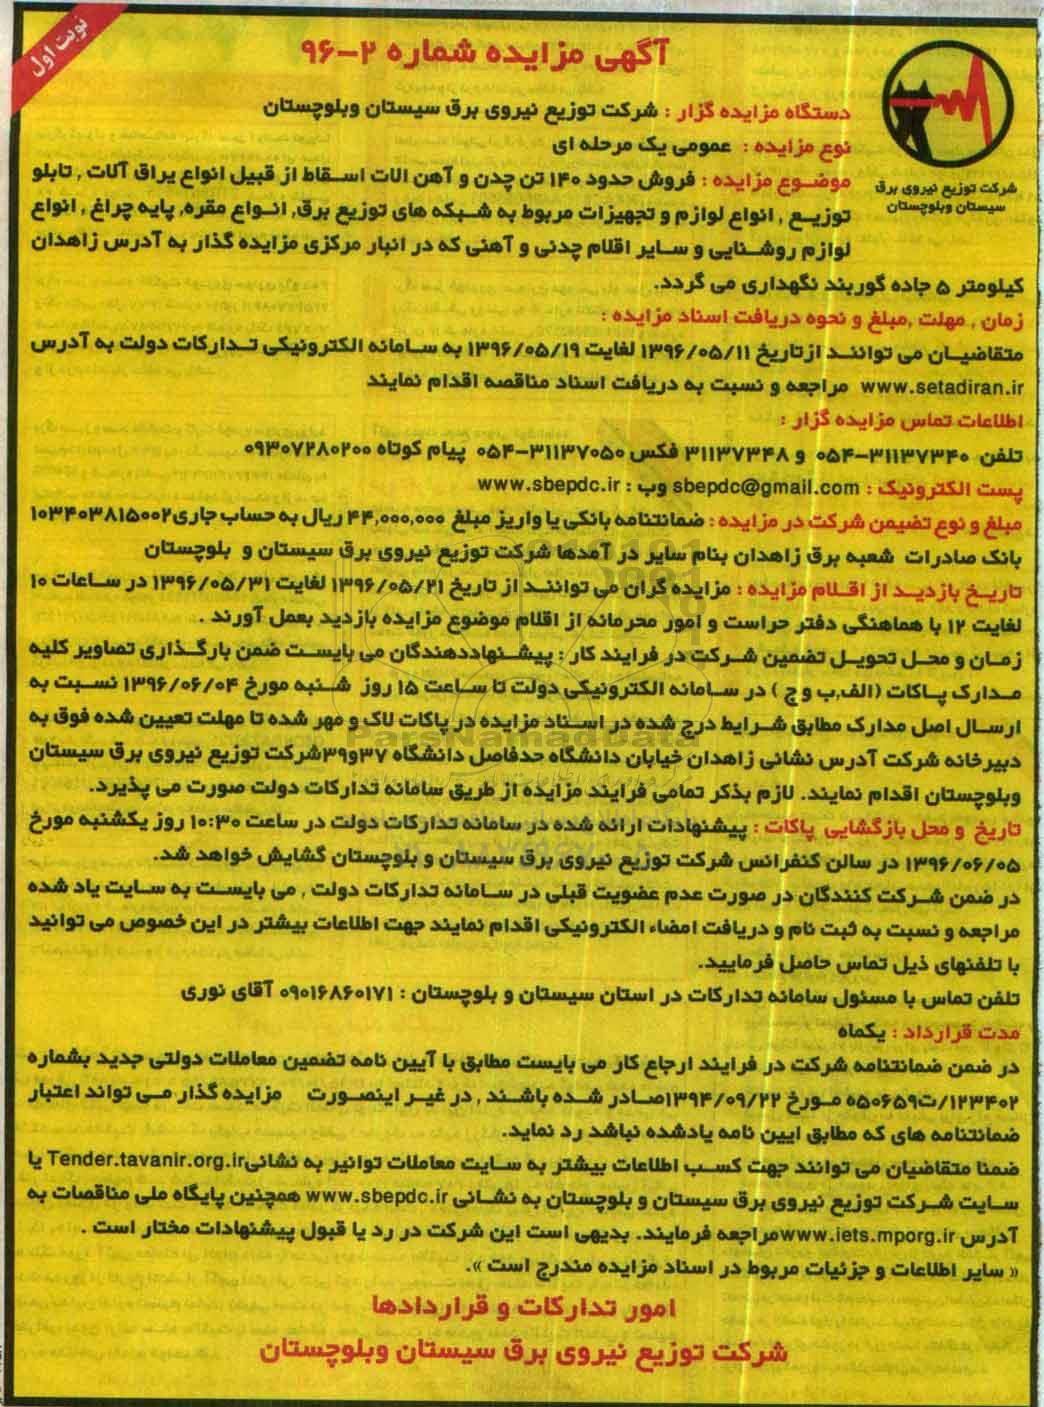 نوبت اول
آگهی مزایده شماره ۲-۹۶
شرکت توزیع نیروی برق
سیستان وبلوچستان
دستگاه مزایده گزار : شرکت توزیع نیروی برق سیستان وبلوچستان
نوع مزایده : عمومی یک مرحله ای
موضوع مزایده : فروش حدود ۱۴۰ تن چدن و آهن الات اسقاط از قبیل انواع یراق آلات , تابلو
توزیع , انواع لوازم و تجهیزات مربوط به شبکه های توزیع برق, انواع مقره, پایه چراغ , انواع
لوازم روشنایی و سایر اقلام چدنی و آهنی که در انبار مرکزی مزایده گذار به آدرس زاهدان
کیلومتر ۵ جاده گوربند نگهداری می گردد.
زمان , مهلت ,مبلغ و نحوه دریافت اسناد مزایده :
متقاضیان می توانند ازتاریخ ۱۳۹۶/۰۵/۱۱ لغایت ۱۳۹۶/۰۵/۱۹ به سامانه الکترونیکی تدارکات دولت به آدرس
www.setadiran.ir مراجعه و نسبت به دریافت اسناد مناقصه اقدام نمایند
اطلاعات تماس مزایده گزار :
تلفن ۳۱۱۳۷۳۴۰-۰۵۴ و ۳۱۱۳۷۳۴۸ فکس ۳۱۱۳۷۰۵۰-۰۵۴ پیام کوتاه ۰۹۳۰۷۲۸۰۲۰۰
پست الکترونیک : sbepdc@gmail.com وب : www.sbepdc.ir
مبلغ و نوع تضیمن شرکت در مزایده : ضمانتنامه بانکی یا واریز مبلغ ۴۴,۰۰۰,۰۰۰ ریال به حساب جاری۱۰۳۴۰۳۸۱۵۰۰۲
بانک صادرات شعبه برق زاهدان بنام سایر در آمدها شرکت توزیع نیروی برق سیستان و بلوچستان
تاریخ بازدید از اقلام مزایده : مزایده گران می توانند از تاریخ ۱۳۹۶/۰۵/۲۱ لغایت ۱۳۹۶/۰۵/۳۱ در ساعات ۱۰
لغایت ۱۲ با هماهنگی دفتر حراست و امور محرمانه از اقلام موضوع مزایده بازدید بعمل آورند .
زمان و محل تحویل تضمین شرکت در فرایند کار : پیشنهاددهندگان می بایست ضمن بارگذاری تصاویر کلیه
مدارک پاکات (الف,ب و ج ) در سامانه الکترونیکی دولت تا ساعت ۱۵ روز شنبه مورخ ۱۳۹۶/۰۶/۰۴ نسبت به
ارسال اصل مدارک مطابق شرایط درج شده در اسناد مزایده در پاکات لاک و مهر شده تا مهلت تعیین شده فوق به
دبیرخانه شرکت آدرس نشانی زاهدان خیابان دانشگاه حدفاصل دانشگاه ۳۷و۳۹شرکت توزیع نیروی برق سیستان
وبلوچستان اقدام نمایند. لازم بذکر تمامی فرایند مزایده از طریق سامانه تدارکات دولت صورت می پذیرد.
تاریخ و محل بازگشایی پاکات : پیشنهادات ارائه شده در سامانه تدارکات دولت در ساعت ۱۰:۳۰ روز یکشنبه مورخ
۱۳۹۶/۰۶/۰۵ در سالن کنفرانس شرکت توزیع نیروی برق سیستان و بلوچستان گشایش خواهد شد.
در ضمن شرکت کنندگان در صورت عدم عضویت قبلی در سامانه تدارکات دولت , می بایست به سایت یاد شده
مراجعه و نسبت به ثبت نام و دریافت امضاء الکترونیکی اقدام نمایند جهت اطلاعات بیشتر در این خصوص می توانید
با تلفنهای ذیل تماس حاصل فرمایید.
تلفن تماس با مسئول سامانه تدارکات در استان سیستان و بلوچستان : ۰۹۰۱۶۸۶۰۱۷۱ آقای نوری
مدت قرارداد : یکماه
در ضمن ضمانتنامه شرکت در فرایند ارجاع کار می بایست مطابق با آیین نامه تضمین معاملات دولتی جدید بشماره
۱۲۳۴۰۲/ت۵۰۶۵۹ه مورخ ۱۳۹۴/۰۹/۲۲صادر شده باشند , در غیر اینصورت مزایده گذار می تواند اعتبار
ضمانتنامه های که مطابق ایین نامه یادشده نباشد رد نماید.
ضمنا متقاضیان می توانند جهت کسب اطلاعات بیشتر به سایت معاملات توانیر به نشانیTender.tavanir.org.ir یا
سایت شرکت توزیع نیروی برق سیستان و بلوچستان به نشانی www.sbepdc.ir همچنین پایگاه ملی مناقصات به
آدرس www.iets.mporg.irمراجعه فرمایند. بدیهی است این شرکت در رد یا قبول پیشنهادات مختار است .
« سایر اطلاعات و جزئیات مربوط در اسناد مزایده مندرج است ».
امور تدارکات و قراردادها
شرکت توزیع نیروی برق سیستان وبلوچستان
ParsNamadData